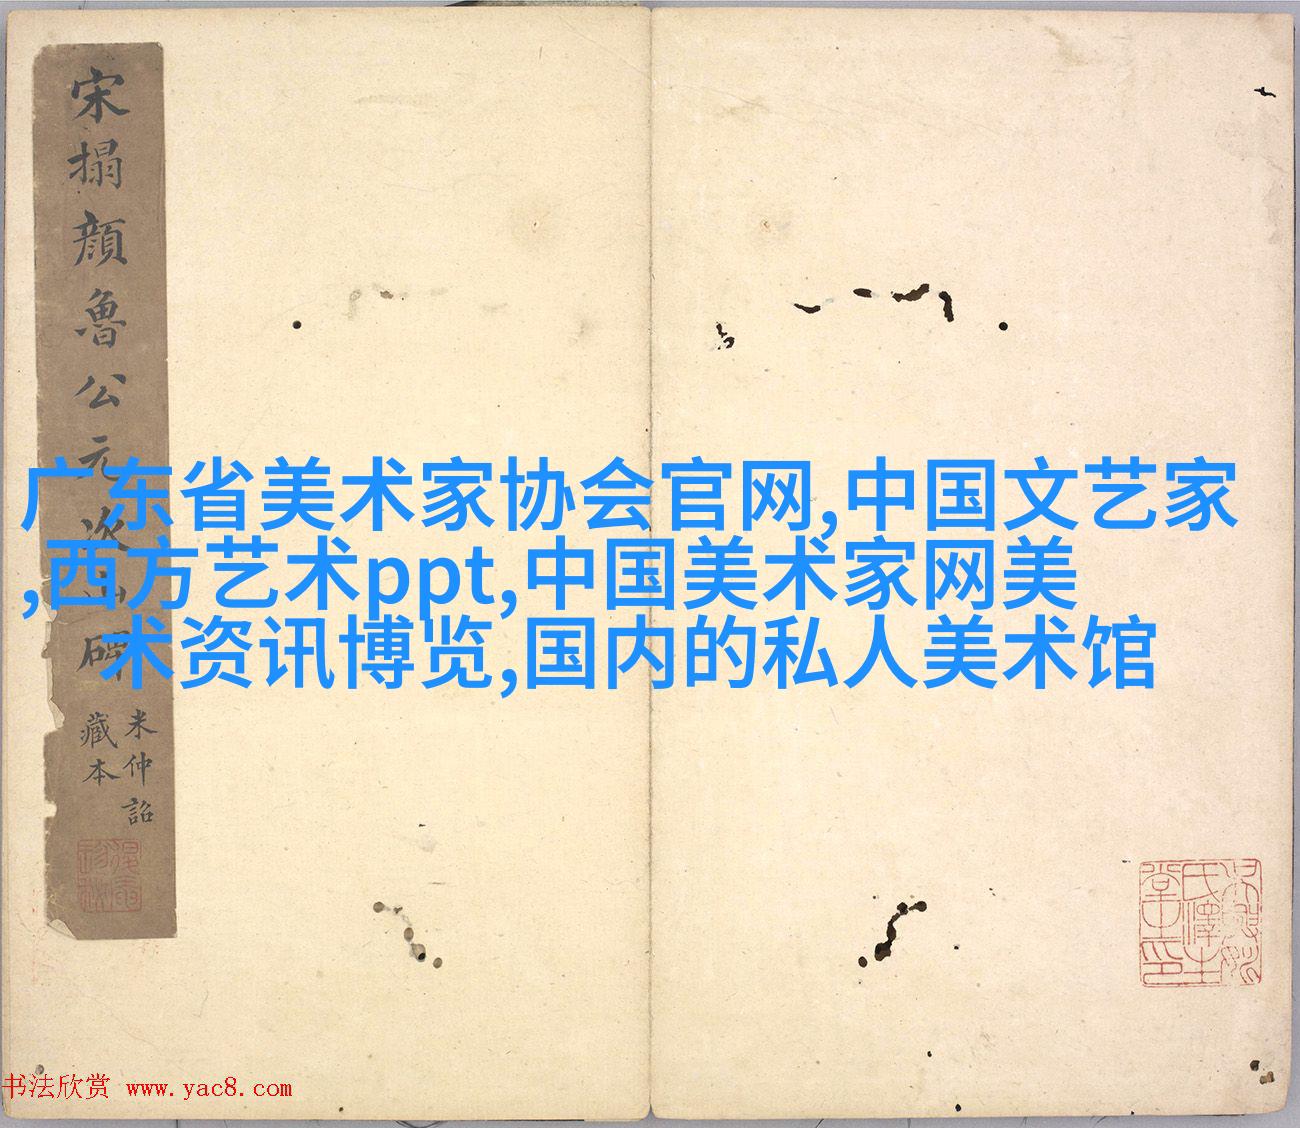 宋搨顔魯公元次山碑
米仲詔
藏本
广东省美术家协会官网,中国文艺家
,西方艺术ppt,中国美术家网美
术资讯博览,国内的私人美术馆
书法欣赏 www.yac8.com